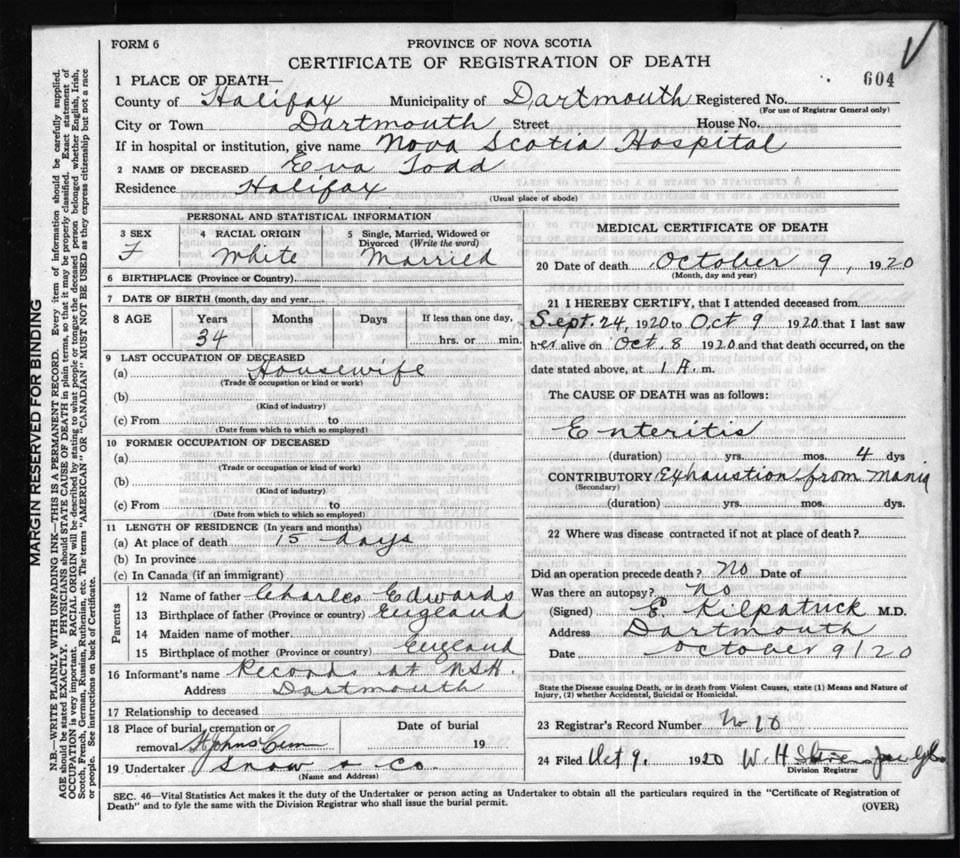 FORM 6
PROVINCE OF NOVA SCOTIA
CERTIFICATE OF REGISTRATION OF DEATH
604
1 PLACE OF DEATH—
County of Halifax Municipality of Dartmouth Registered No.
(For use of Registrar General only)
City or Town Dartmouth Street House No.
If in hospital or institution, give name Nova Scotia Hospital
2 NAME OF DECEASED Eva Todd
Residence Halifax
(Usual place of abode)
PERSONAL AND STATISTICAL INFORMATION
3 SEX 4 RACIAL ORIGIN 5 Single, Married, Widowed or Divorced (Write the word)
F White Married
6 BIRTHPLACE (Province or Country)
7 DATE OF BIRTH (month, day and year
8 AGE Years Months Days If less than one day,
34 hrs. or min.
9 LAST OCCUPATION OF DECEASED
(a) Housewife
(Trade or occupation or kind or work)
(b)
(Kind of industry)
(c) From to
(Date from which to which so employed)
10 FORMER OCCUPATION OF DECEASED
(a)
(Trade or occupation or kind of work)
(b)
(Kind of industry)
(c) From to
(Date from which to which so employed)
11 LENGTH OF RESIDENCE (In years and months)
(a) At place of death 15 days
(b) In province
(c) In Canada (if an immigrant)
Parents
12 Name of father Charles Edwards
13 Birthplace of father (Province or country) England
14 Maiden name of mother
15 Birthplace of mother (Province or country) England
16 Informant's name Records at N.S.H.
Address Dartmouth
17 Relationship to deceased
18 Place of burial, cremation or removal St Johns Cem Date of burial 19
19 Undertaker Snow & Co.
(Name and Address)
MEDICAL CERTIFICATE OF DEATH
20 Date of death October 9, 1920
(Month, day and year)
21 I HEREBY CERTIFY, that I attended deceased from
Sept. 24, 1920 to Oct 9 1920 that I last saw
her alive on Oct. 8 1920 and that death occurred, on the
date stated above, at 1 A. m.
The CAUSE OF DEATH was as follows:
Enteritis
(duration) yrs. mos. 4 dys
CONTRIBUTORY Exhaustion from Mania
(Secondary)
(duration) yrs. mos. dys.
22 Where was disease contracted if not at place of death?
Did an operation precede death? No Date of
Was there an autopsy? No
(Signed) E. Kilpatrick M.D.
Address Dartmouth
Date October 9/20
State the Disease causing Death, or in death from Violent Causes, state (1) Means and Nature of
Injury, (2) whether Accidental, Suicidal or Homicidal.
23 Registrar's Record Number No 10
24 Filed Oct 9. 1920 W. H.
Division Registrar
SEC. 46—Vital Statistics Act makes it the duty of the Undertaker or person acting as Undertaker to obtain all the particulars required in the "Certificate of Registration of
Death" and to fyle the same with the Division Registrar who shall issue the burial permit.
(OVER)
MARGIN RESERVED FOR BINDING
N.B.—WRITE PLAINLY WITH UNFADING INK—THIS IS A PERMANENT RECORD. Every item of information should be carefully supplied.
AGE should be stated EXACTLY. PHYSICIANS should STATE CAUSE OF DEATH in plain terms, so that it may be properly classified. Exact statement of
OCCUPATION is very important. RACIAL ORIGIN will be described by stating to what people or tongue the deceased person belonged whether English, Irish,
Scotch, French, German, Russian, Ruthenian, etc. The terms "AMERICAN" OR "CANADIAN" MUST NOT BE USED as they express citizenship but not a race
or people. See instructions on back of Certificate.